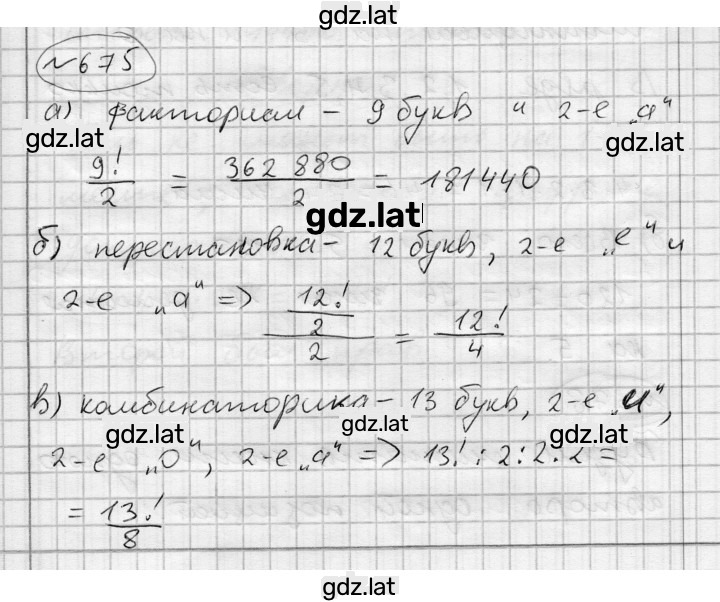 gdz.lat
№675
а) факториал - 9 букв и 2-е „а"
gdz.lat
gdz.lat
9!/2 = 362 880/2 = 181440
gdz.lat
б) перестановка - 12 букв, 2-е „е" и
2-е „а" => 12!/2/2 = 12!/4
в) комбинаторика - 13 букв, 2-е „и",
gdz.lat
gdz.lat
gdz.lat
2-е „о", 2-е „а" => 13! : 2 : 2 : 2 =
= 13!/8
gdz.lat